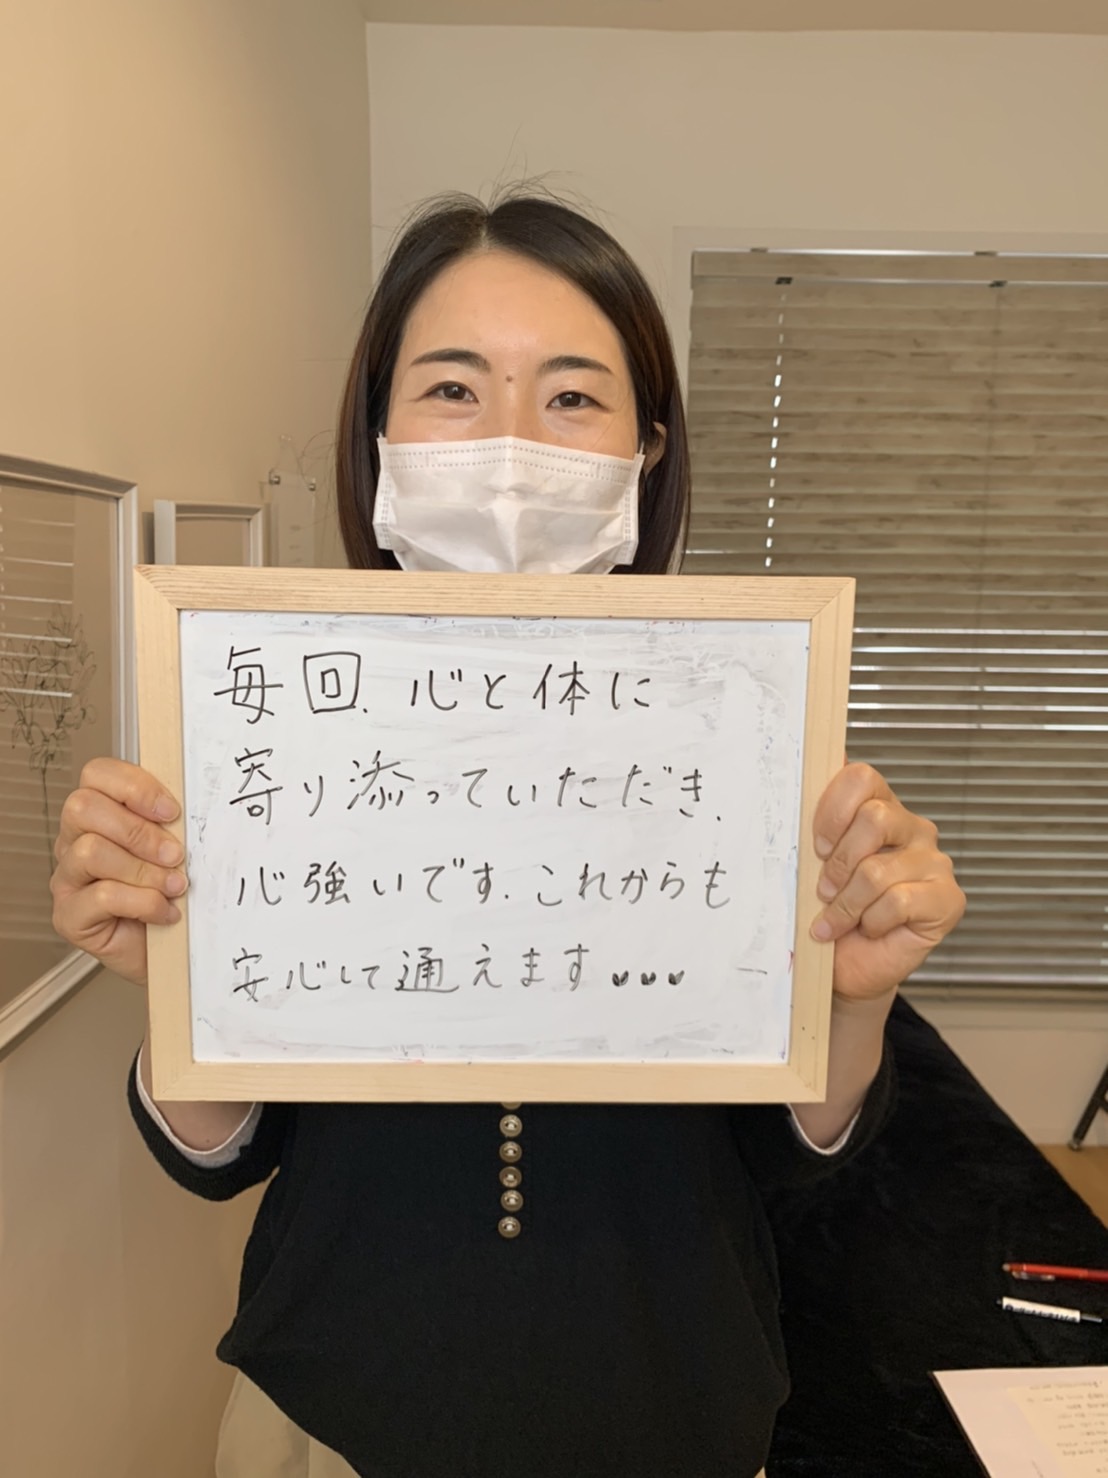 毎回、心と体に
寄り添っていただき、
心強いです。これからも
安心して通えます